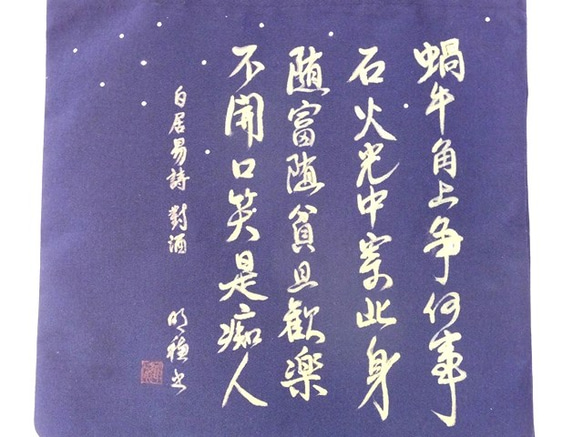 蝸牛角上争何事
石火光中寄此身
随富随貧且歓楽
不開口笑是痴人
白居易詩 對酒